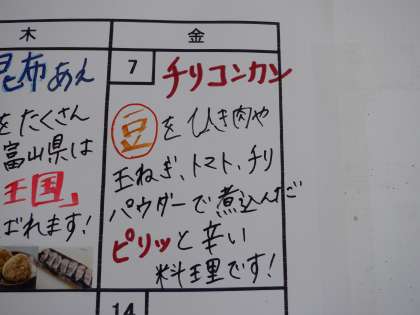 木
金
昆布あえ
をたくさん
富山県は
王国」
ばれます!
7
チリコンカン
豆をひき肉や
玉ねぎ、トマト、チリ
パウダーで煮込んだ
ピリッと辛い
料理です!
14